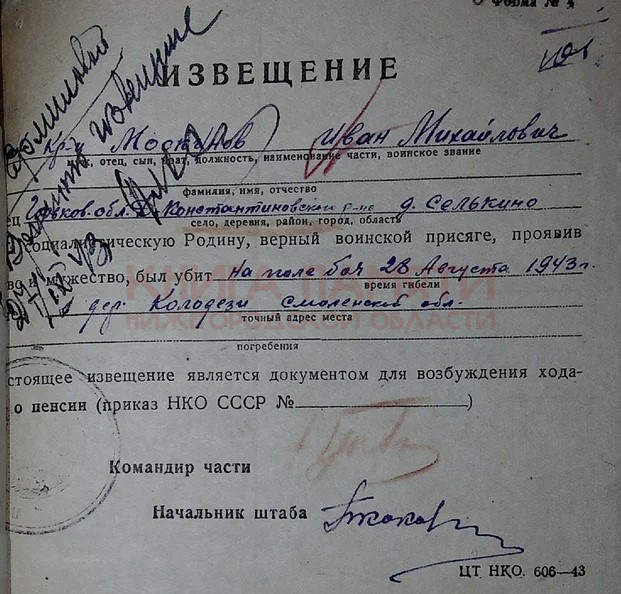 Форма № 4
ИЗВЕЩЕНИЕ
Кр-ц Иван Михайлович
муж, отец, сын, брат, должность, наименование части, воинское звание
фамилия, имя, отчество
обл. Д. Константиновский р-но д. Селькино
село, деревня, район, город, область
социалистическую Родину, верный воинской присяге, проявив
во и мужество, был убит на поле боя 28 Августа 1943 г.
время гибели
дер. Колодези Смоленской обл.
точный адрес места
погребения
КНИГА ПАМЯТИ
НИЖЕГОРОДСКОЙ ОБЛАСТИ
стоящее извещение является документом для возбуждения хода-
о пенсии (приказ НКО СССР № )
Командир части
Начальник штаба
ЦТ НКО. 606—43